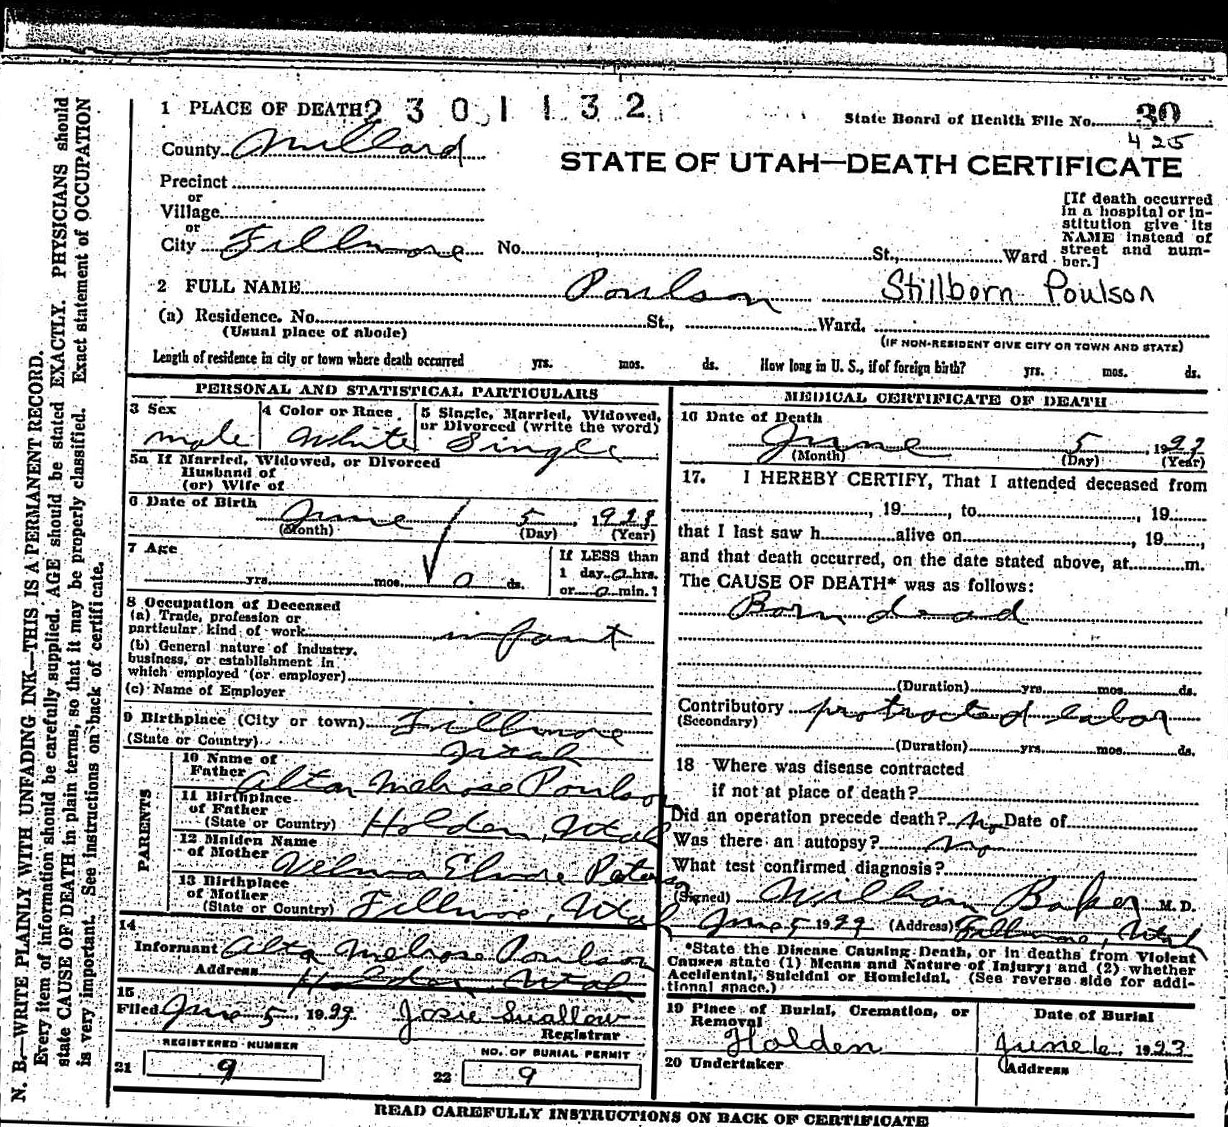 1 PLACE OF DEATH 2 3 0 1 1 3 2
State Board of Health File No. 30
425
County Millard
STATE OF UTAH—DEATH CERTIFICATE
Precinct
or
Village
or
City Fillmore No. St., Ward
[If death occurred
in a hospital or in-
stitution give its
NAME instead of
street and num-
ber.]
2 FULL NAME Poulson Stillborn Poulson
(a) Residence. No. St., Ward.
(Usual place of abode)
(IF NON-RESIDENT GIVE CITY OR TOWN AND STATE)
Length of residence in city or town where death occurred yrs. mos. ds. How long in U. S., if of foreign birth? yrs. mos. ds.
PERSONAL AND STATISTICAL PARTICULARS
3 Sex
male
4 Color or Race
White
5 Single, Married, Widowed,
or Divorced (write the word)
Single
5a If Married, Widowed, or Divorced
Husband of
(or) Wife of
6 Date of Birth
June 5, 1923
(Month) (Day) (Year)
7 Age
yrs. mos. 0 ds.
If LESS than
1 day 0 hrs.
or 0 min.?
8 Occupation of Deceased
(a) Trade, profession or
particular kind of work infant
(b) General nature of Industry,
business, or establishment in
which employed (or employer)
(c) Name of Employer
9 Birthplace (City or town) Fillmore
(State or Country) Utah
PARENTS
10 Name of
Father Alton Melrose Poulson
11 Birthplace
of Father
(State or Country) Holden, Utah
12 Maiden Name
of Mother Velma Peterson
13 Birthplace
of Mother
(State or Country) Fillmore, Utah
14
Informant Alta Melrose Poulson
Address Holden Utah
15
Filed June 5, 1923 Josie Swallow
Registrar
REGISTERED NUMBER
21 9
NO. OF BURIAL PERMIT
22 9
MEDICAL CERTIFICATE OF DEATH
16 Date of Death
June 5, 1923
(Month) (Day) (Year)
17. I HEREBY CERTIFY, That I attended deceased from
, 19 , to , 19
that I last saw h alive on , 19 ,
and that death occurred, on the date stated above, at m.
The CAUSE OF DEATH* was as follows:
Born dead
(Duration) yrs. mos. ds.
Contributory protracted labor
(Secondary)
(Duration) yrs. mos. ds.
18 Where was disease contracted
if not at place of death?
Did an operation precede death? No Date of
Was there an autopsy? No
What test confirmed diagnosis?
(Signed) William Baker M. D.
June 5 1923 (Address) Fillmore, Utah
*State the Disease Causing Death, or in deaths from Violent
Causes state (1) Means and Nature of Injury; and (2) whether
Accidental, Suicidal or Homicidal. (See reverse side for addi-
tional space.)
19 Place of Burial, Cremation, or
Removal
Holden
Date of Burial
June 6, 1923
20 Undertaker
Address
READ CAREFULLY INSTRUCTIONS ON BACK OF CERTIFICATE
N. B.—WRITE PLAINLY WITH UNFADING INK—THIS IS A PERMANENT RECORD.
Every item of information should be carefully supplied. AGE should be stated EXACTLY. PHYSICIANS should
state CAUSE OF DEATH in plain terms, so that it may be properly classified. Exact statement of OCCUPATION
is very important. See instructions on back of certificate.